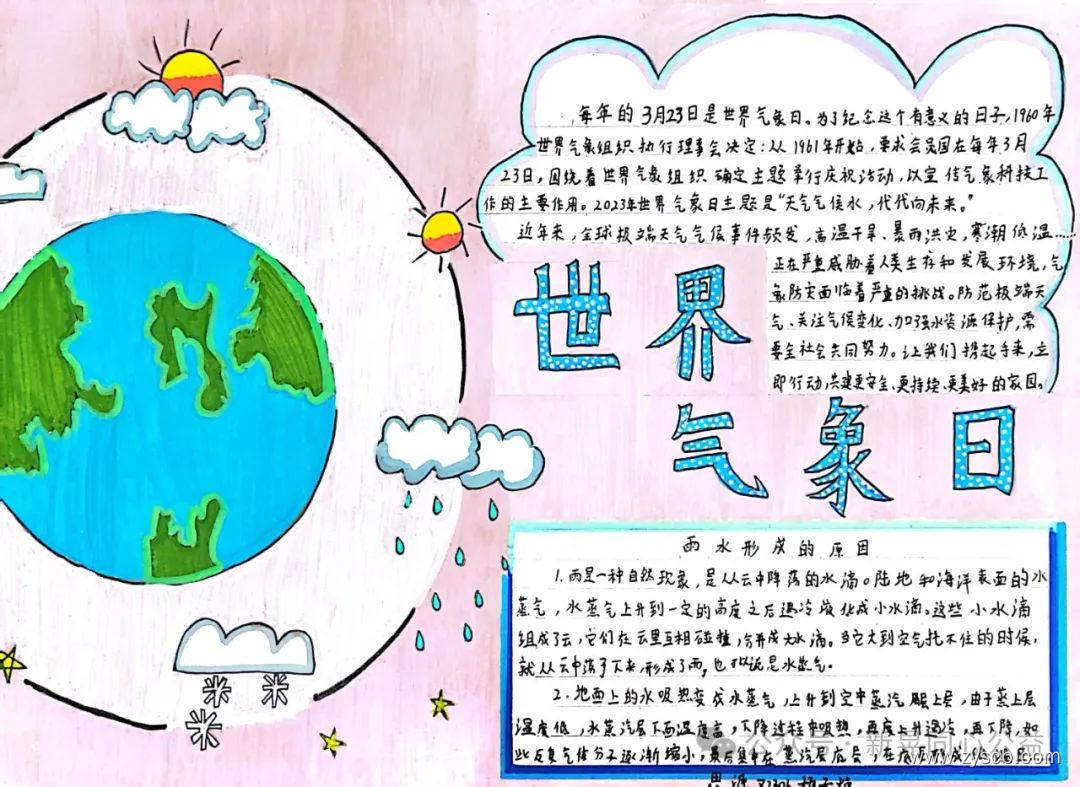 每年的3月23日是世界气象日。为了纪念这个有意义的日子,1960年
世界气象组织执行理事会决定:从1961年开始,要求会员国在每年3月
23日,围绕着世界气象组织确定主题举行庆祝活动,以宣传气象科技工
作的主要作用。2023年世界气象日主题是"天气气候水,代代向未来。"
近年来,全球极端天气气候事件频发,高温干旱、暴雨洪灾,寒潮低温……
正在严重威胁着人类生存和发展环境,气
象防灾面临着严重的挑战。防范极端天
气、关注气候变化、加强水资源保护,需
要全社会共同努力。让我们携起手来,立
即行动,共建更安全、更持续、更美好的家园。
世界
气象日
雨水形成的原因
1.雨是一种自然现象,是从云中降落的水滴。陆地和海洋表面的水
蒸气,水蒸气上升到一定的高度之后遇冷液化成小水滴。这些小水滴
组成了云,它们在云里互相碰撞,合并成大水滴。当它大到空气托不住的时候,
就从云中落了下来,形成了雨,也就是水蒸气。
2.地面上的水吸热变成水蒸气,上升到空中蒸汽层上层,由于蒸上层
温度低,水蒸汽层下面温度高,下降过程中吸热,再度上升遇冷,再下降,如
此反复气体分子逐渐缩小,最后集中在蒸汽层底层,在底层形成低温
公众号·新苹同心公益
www.zyscb.com